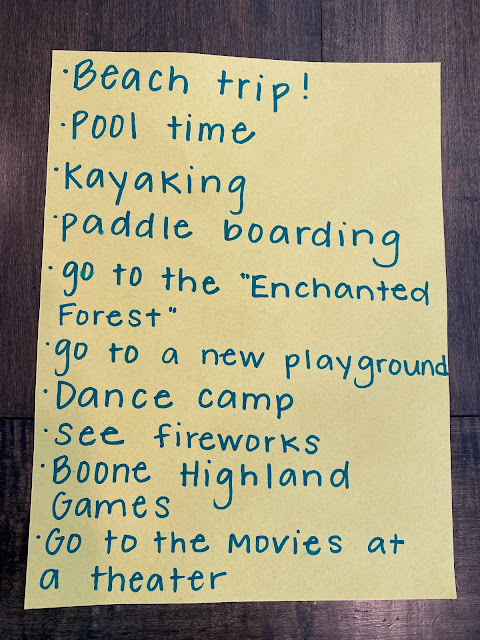 ·Beach trip!
·Pool time
·Kayaking
·paddle boarding
·go to the "Enchanted
Forest"
·go to a new playground
·Dance camp
·see fireworks
·Boone Highland
Games
·Go to the Movies at
a theater